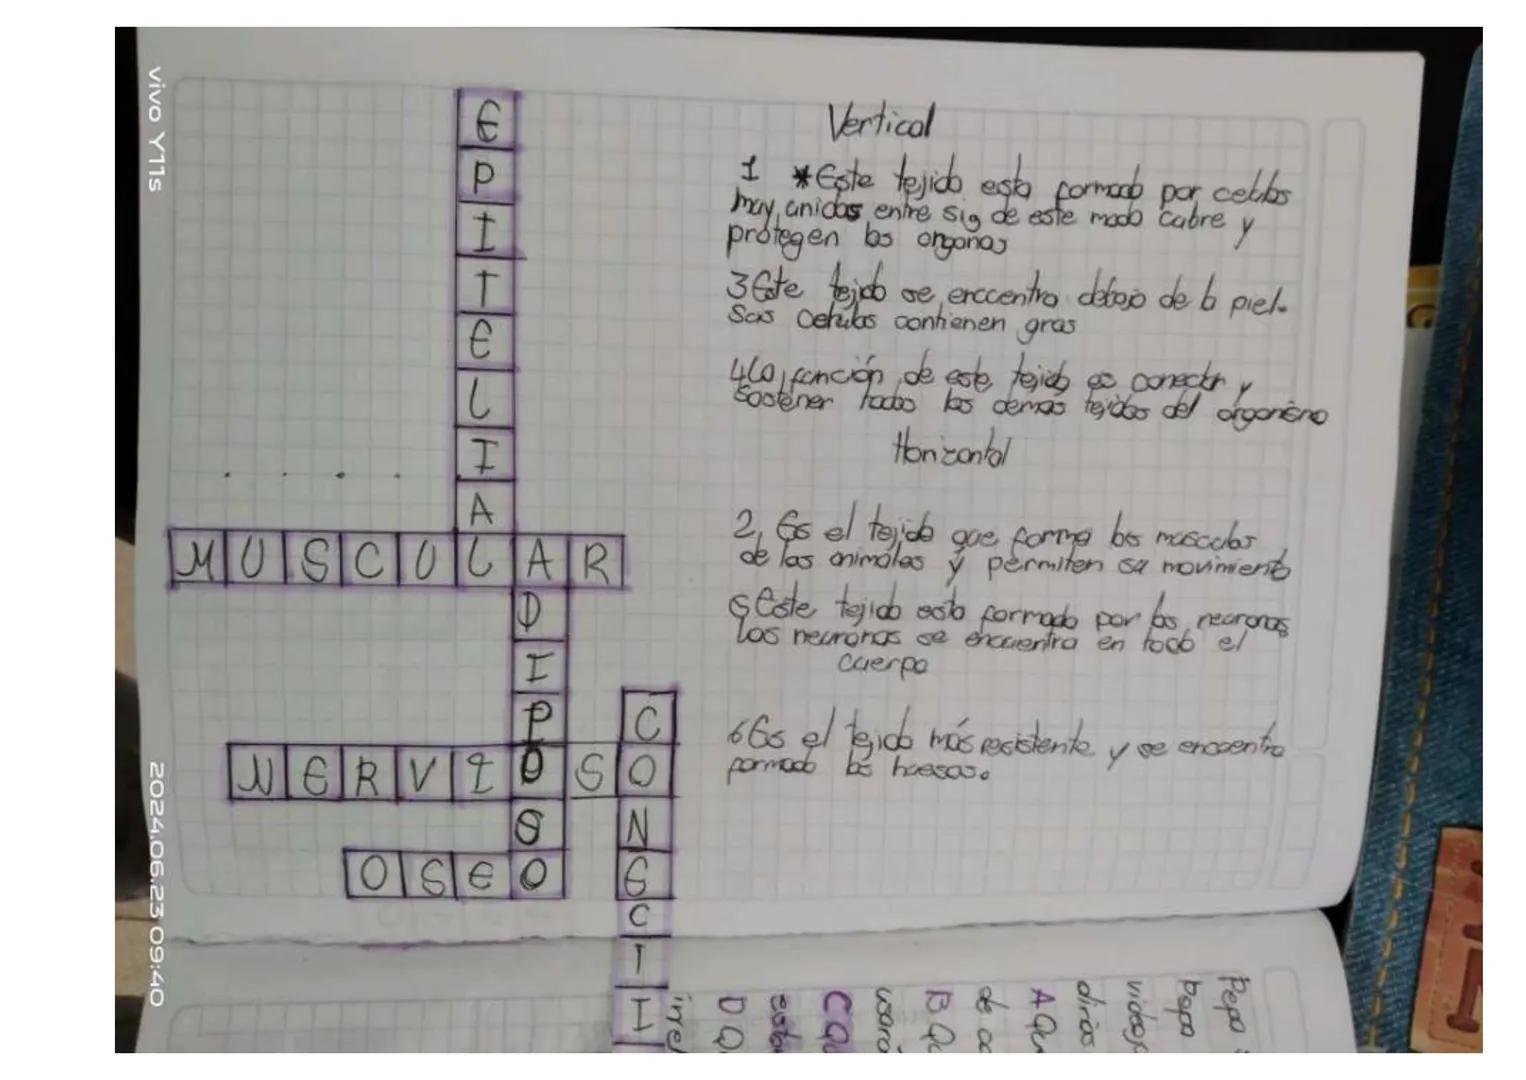 EPITELIAL
MUSCULAR
ADIPOSO
NERVIOSO
OSEO
CONECTI
Vertical
1 *Este tejido esta formado por celulas
muy unidas entre si, de este modo cubre y
protegen los organos
3 Este tejido se encuentra debajo de la piel.
Sus celulas contienen gras
4 La función de este tejido es conectar y
sostener todos los demas tejidos del organismo
Horizontal
2, Es el tejido que forma los musculos
de los animales y permiten su movimiento
5 Este tejido esta formado por las neuronas
Las neuronas se encuentra en todo el
cuerpo
6 Es el tejido más resistente y se encuentra
formado los huesos.
Pepa
pepa
videoj
dirias
A Qu
de ac
B Qu
usaro
C Qu
estab
D Q
irrel
vivo Y11s
2024.06.23 09:40